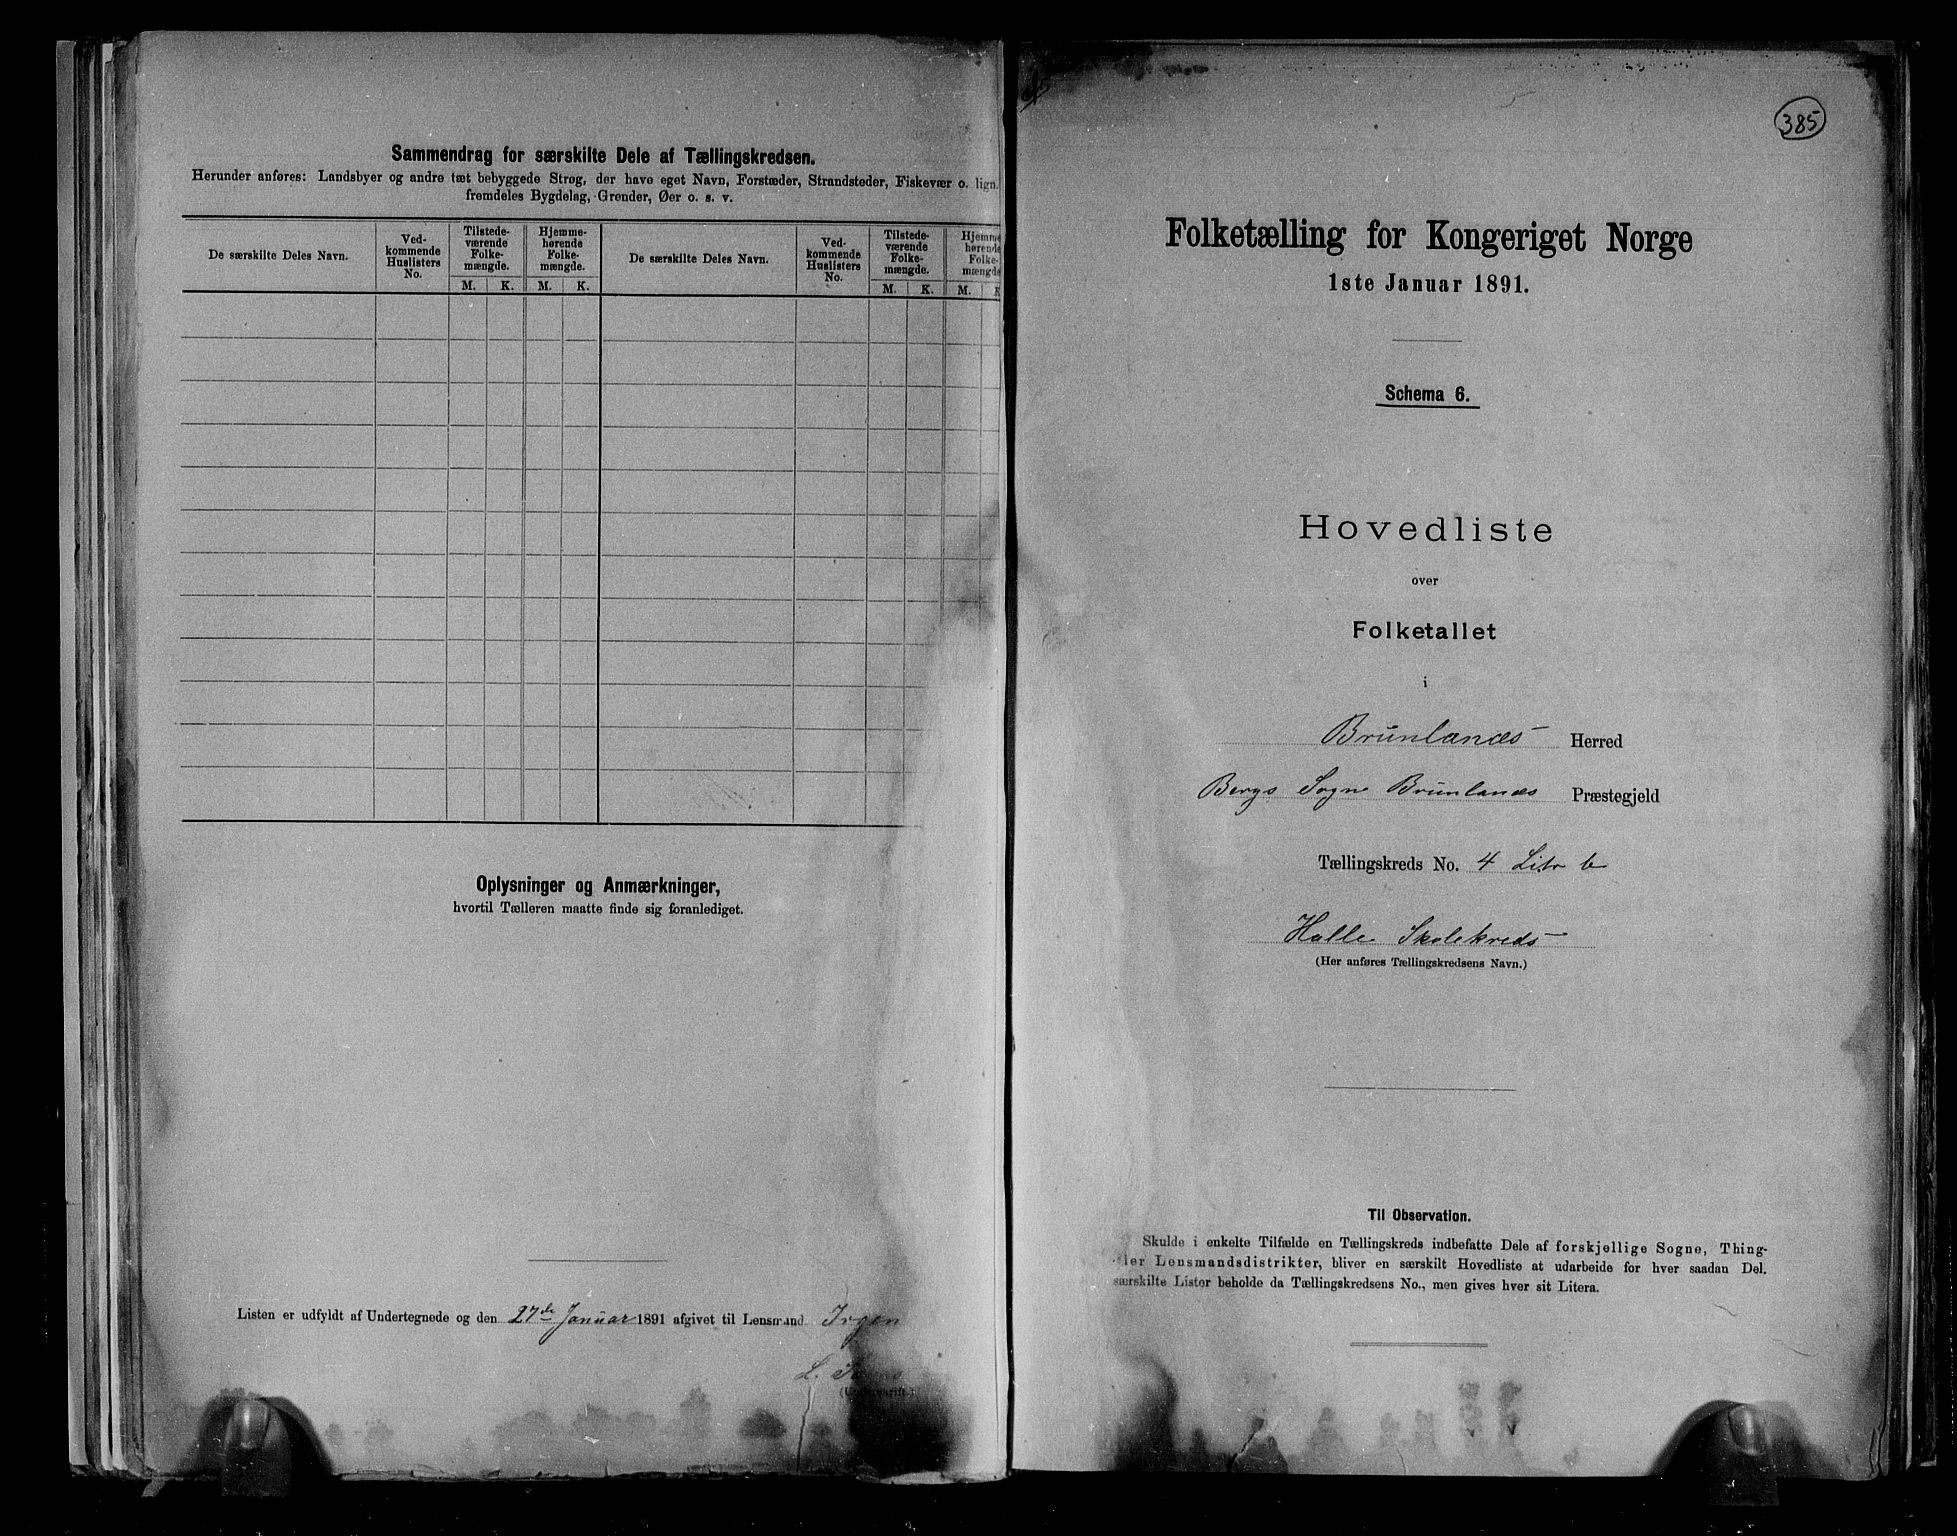 Sammendrag for særskilte Dele af Tællingskredsen.
Herunder anføres: Landsbyer og andre tæt bebyggede Strøg, der have eget Navn, Forstæder, Strandsteder, Fiskevær o. lign.
fremdeles Bygdelag, Grender, Øer o. s. v.
De særskilte Deles Navn.
Ved-
kommende
Huslisters
No.
Tilstede-
værende
Folke-
mængde.
Hjemme-
hørende
Folke-
mængde.
M. K. M. K.
De særskilte Deles Navn.
Ved-
kommende
Huslisters
No.
Tilstede-
værende
Folke-
mængde.
Hjemme
hørende
Folke-
mængde
M. K. M. K
Oplysninger og Anmærkninger,
hvortil Tælleren maatte finde sig foranlediget.
Listen er udfyldt af Undertegnede og den 27de Januar 1891 afgivet til Lensmand
L.
(Underskrift.)
385
Folketælling for Kongeriget Norge
1ste Januar 1891.
Schema 6.
Hovedliste
over
Folketallet
i
Brunlanæs Herred
Bergs Sogne Brunlanæs Præstegjeld
Tællingskreds No. 4 Litr b
Halle Skolekreds
(Her anføres Tællingskredsens Navn.)
Til Observation.
Skulde i enkelte Tilfælde en Tællingskreds indbefatte Dele af forskjellige Sogne, Thing-
ler Lensmandsdistrikter, bliver en særskilt Hovedliste at udarbeide for hver saadan Del.
særskilte Lister beholde da Tællingskredsens No., men gives hver sit Litera.